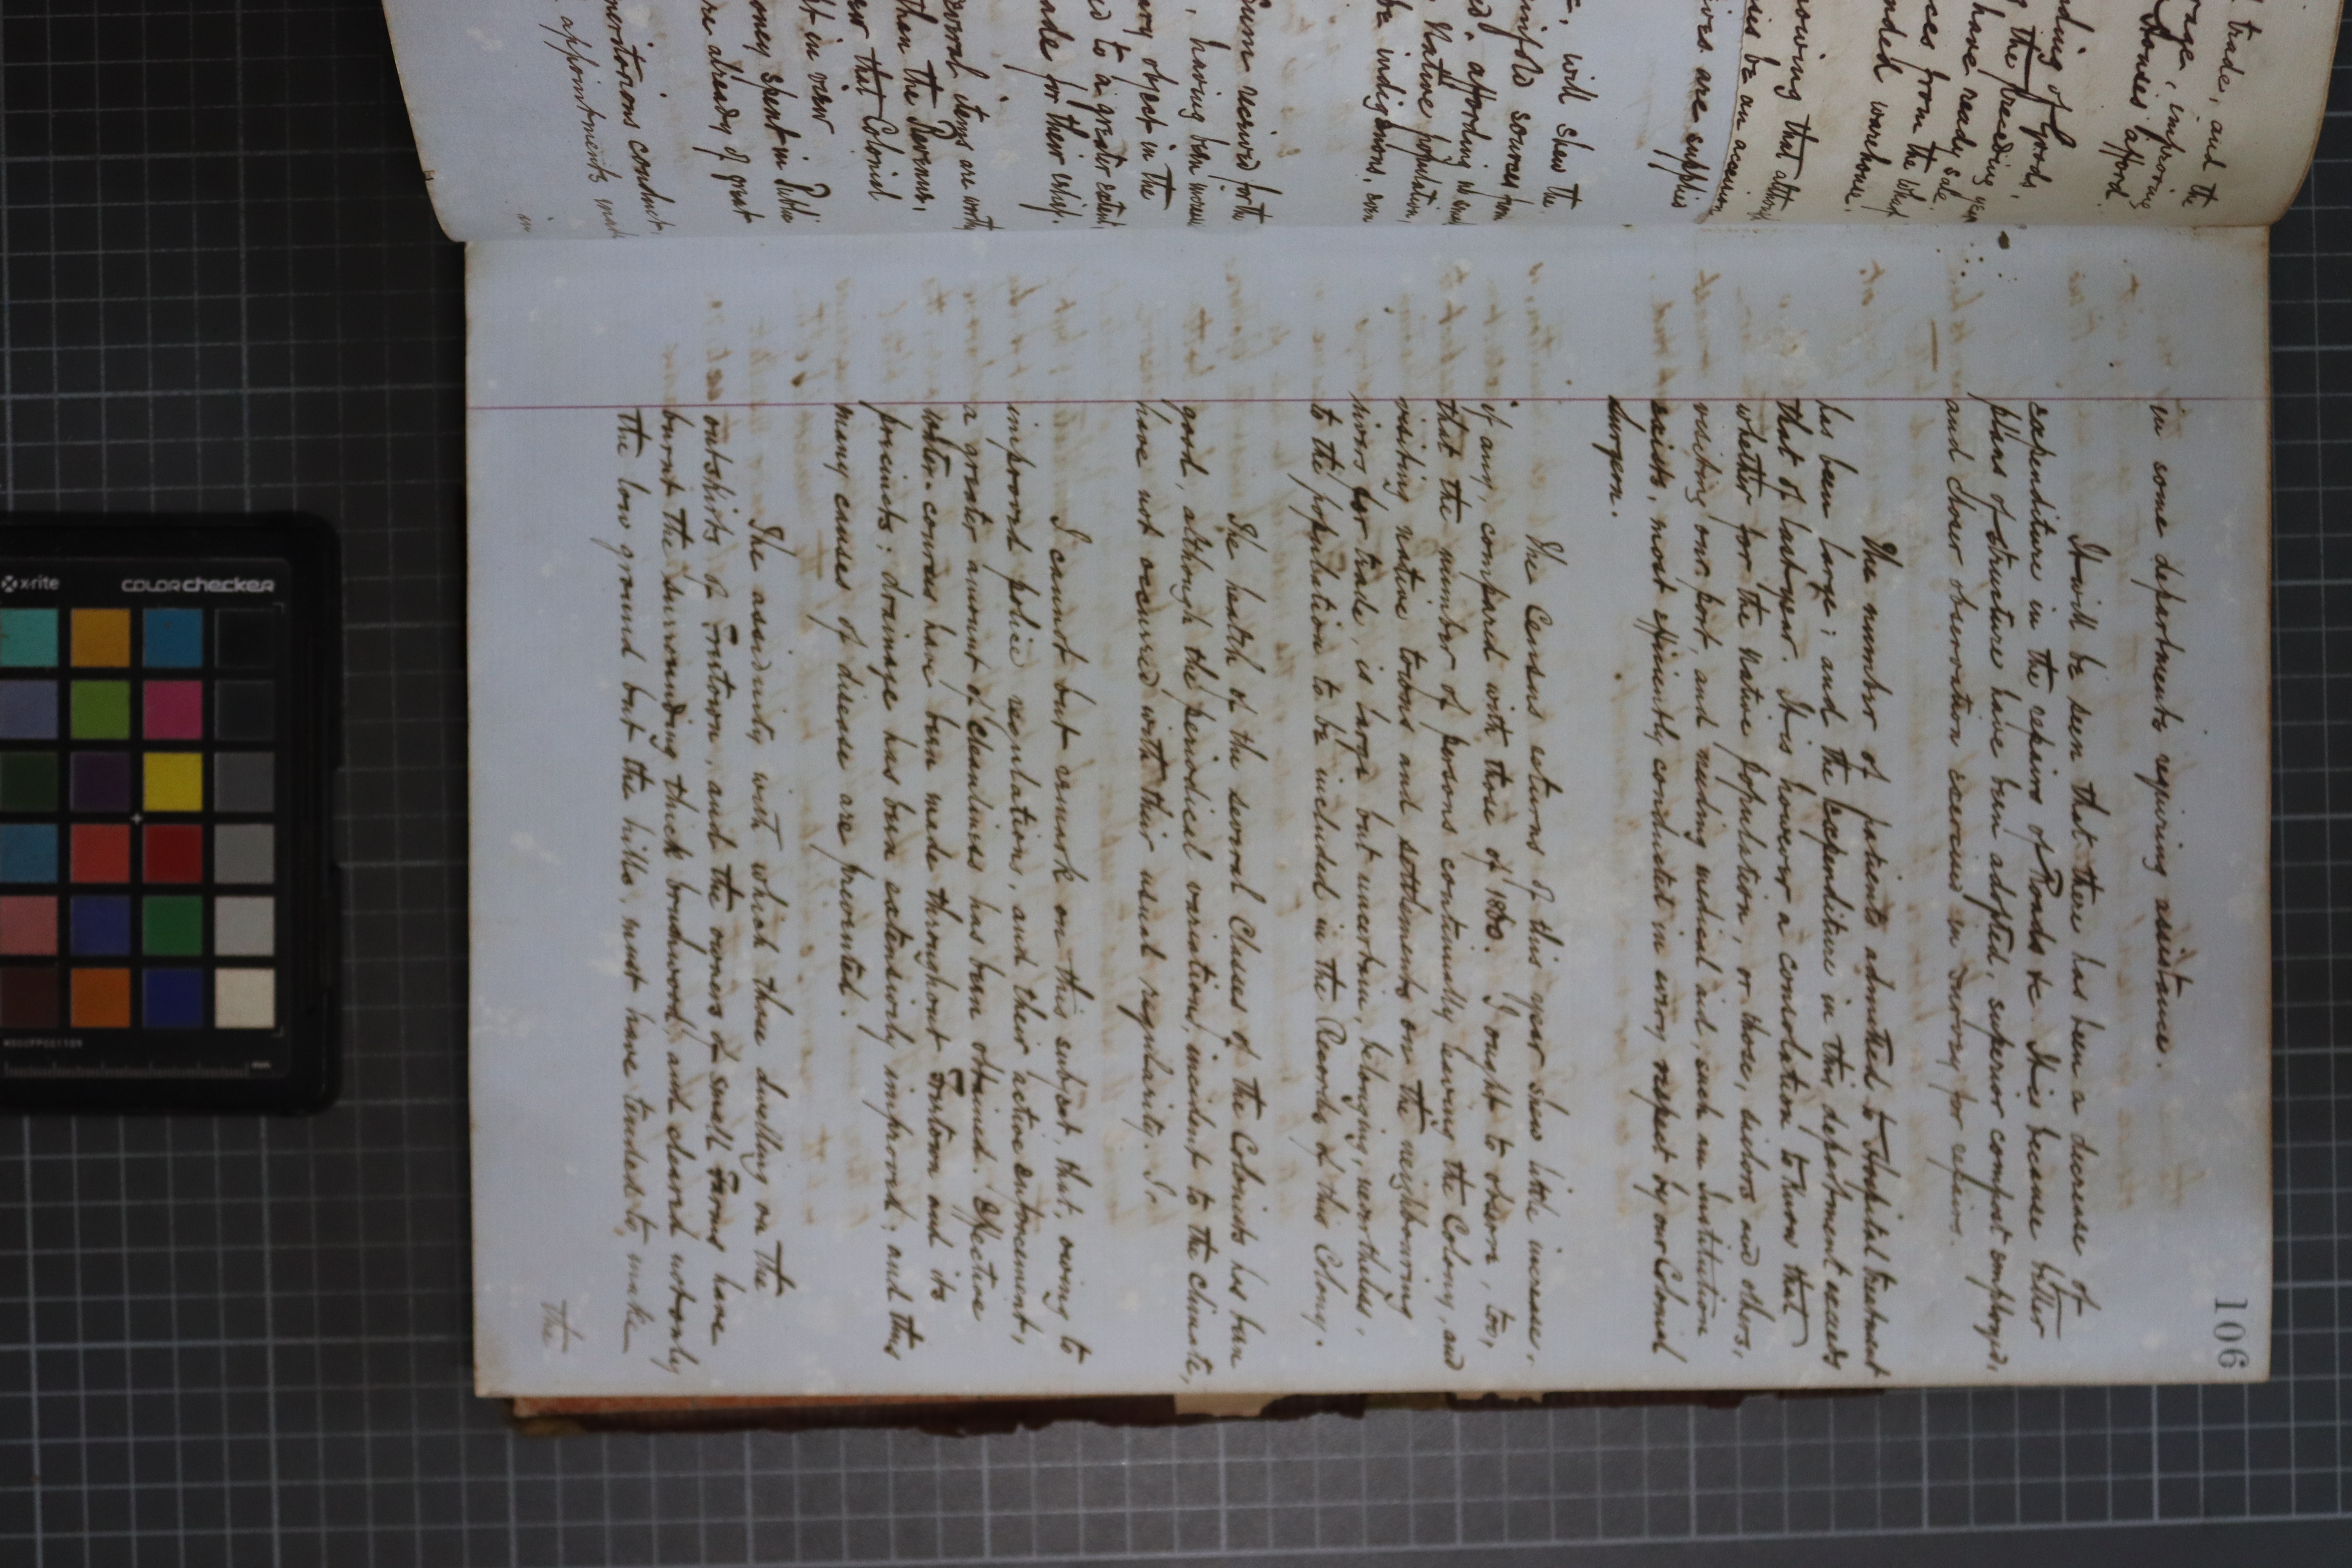 trade, and the
rage, improving
Houses afford.
nding of Goods,
g the preceding year
have ready sale
ces from the What
nded warehouse,
nowing that
be an accession
ives are supplies
, will shew the
nifold sources from
ed, affording
Native population,
be indigenous, some
Sum received for the
, having been
ary object in the
ed to a greater extent,
ade for their
several items are
than the Revenue,
er that Colonial
t in view
oney spent in Public
re already of great
meritorious conduct,
appointments
in
106
in some departments requiring assistance.
It will be seen that there has been a decrease of
expenditure in the repairs of Roads &c. It is because better
plans of structure have been adopted, superior compost employed,
and closer observation exercised in Survey for repairs.
The number of patients admitted to Hospital treatment
has been large; and the Expenditure in this department exceeds
that of last year. It is however a consolation to know that
whether for the Native population, or those, sailors and others,
visiting our port, and needing medical aid, such an Institution
exists, most efficiently conducted in every respect by our Colonial
Surgeon.
The Census returns of this year shew little increase,
if any, compared with those of 1860. I ought to observe, too,
that the number of persons continually leaving the Colony, and
visiting native towns and settlements on the neighbouring
rivers for trade, is large but uncertain, belonging, nevertheless,
to the population to be included in the Records of this Colony.
The health of the several Classes of the Colonists has been
good, although the periodical variations, incident to the climate,
have not occurred with their usual regularity.
I cannot but remark on this subject, that, owing to
improved police regulations, and their active enforcement,
a greater amount of cleanliness has been obtained. Effective
water-courses have been made throughout Freetown and its
precincts; drainage has been extensively improved; and thus
many causes of disease are prevented.
The assiduity with which those dwelling on the
outskirts of Freetown, and the owners of small Farms have
burnt the surrounding thick brushwood, and cleared not only
the low ground but the hills, must have tended to make
the
x-rite
COLORchecker